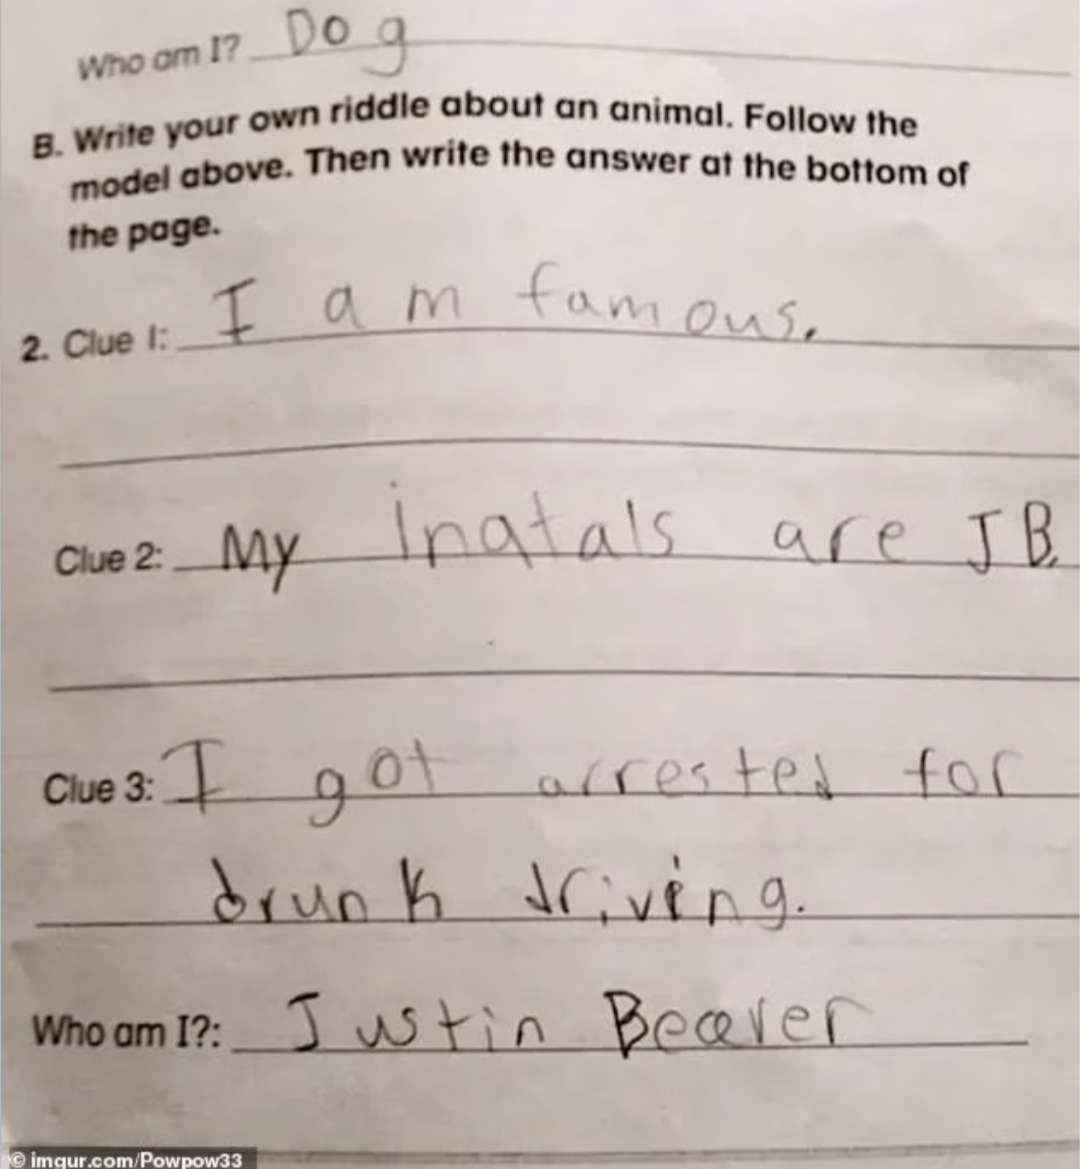 Who am I? Dog
B. Write your own riddle about an animal. Follow the
model above. Then write the answer at the bottom of
the page.
2. Clue 1: I am famous.
Clue 2: My inatals are JB.
Clue 3: I got arrested for
drunk driving.
Who am I?: Justin Beaver
© imgur.com/Powpow33